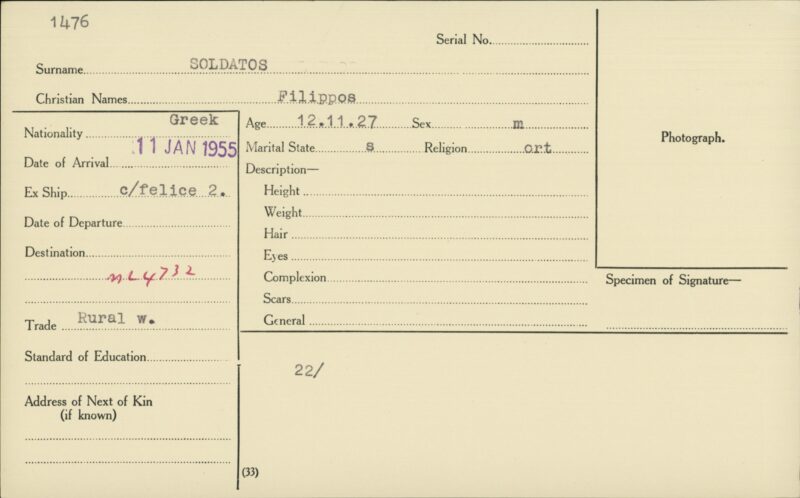 1476
Serial No.
Surname SOLDATOS
Christian Names Filippos
Nationality Greek
Date of Arrival 11 JAN 1955
Ex Ship c/felice 2.
Date of Departure
Destination
NL4732
Trade Rural w.
Standard of Education
Address of Next of Kin
(if known)
Age 12.11.27 Sex m
Marital State s Religion ort
Description—
Height
Weight
Hair
Eyes
Complexion
Scars
General
22/
(33)
Photograph.
Specimen of Signature—